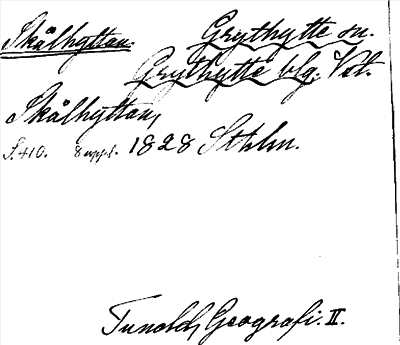 Skålhyttan. Grythytte sn.
Grythytte blg. Vstl.
Skålhyttan,
S. 410. 8 uppl. 1828 Sthlm.
Tunold, Geografi. II.